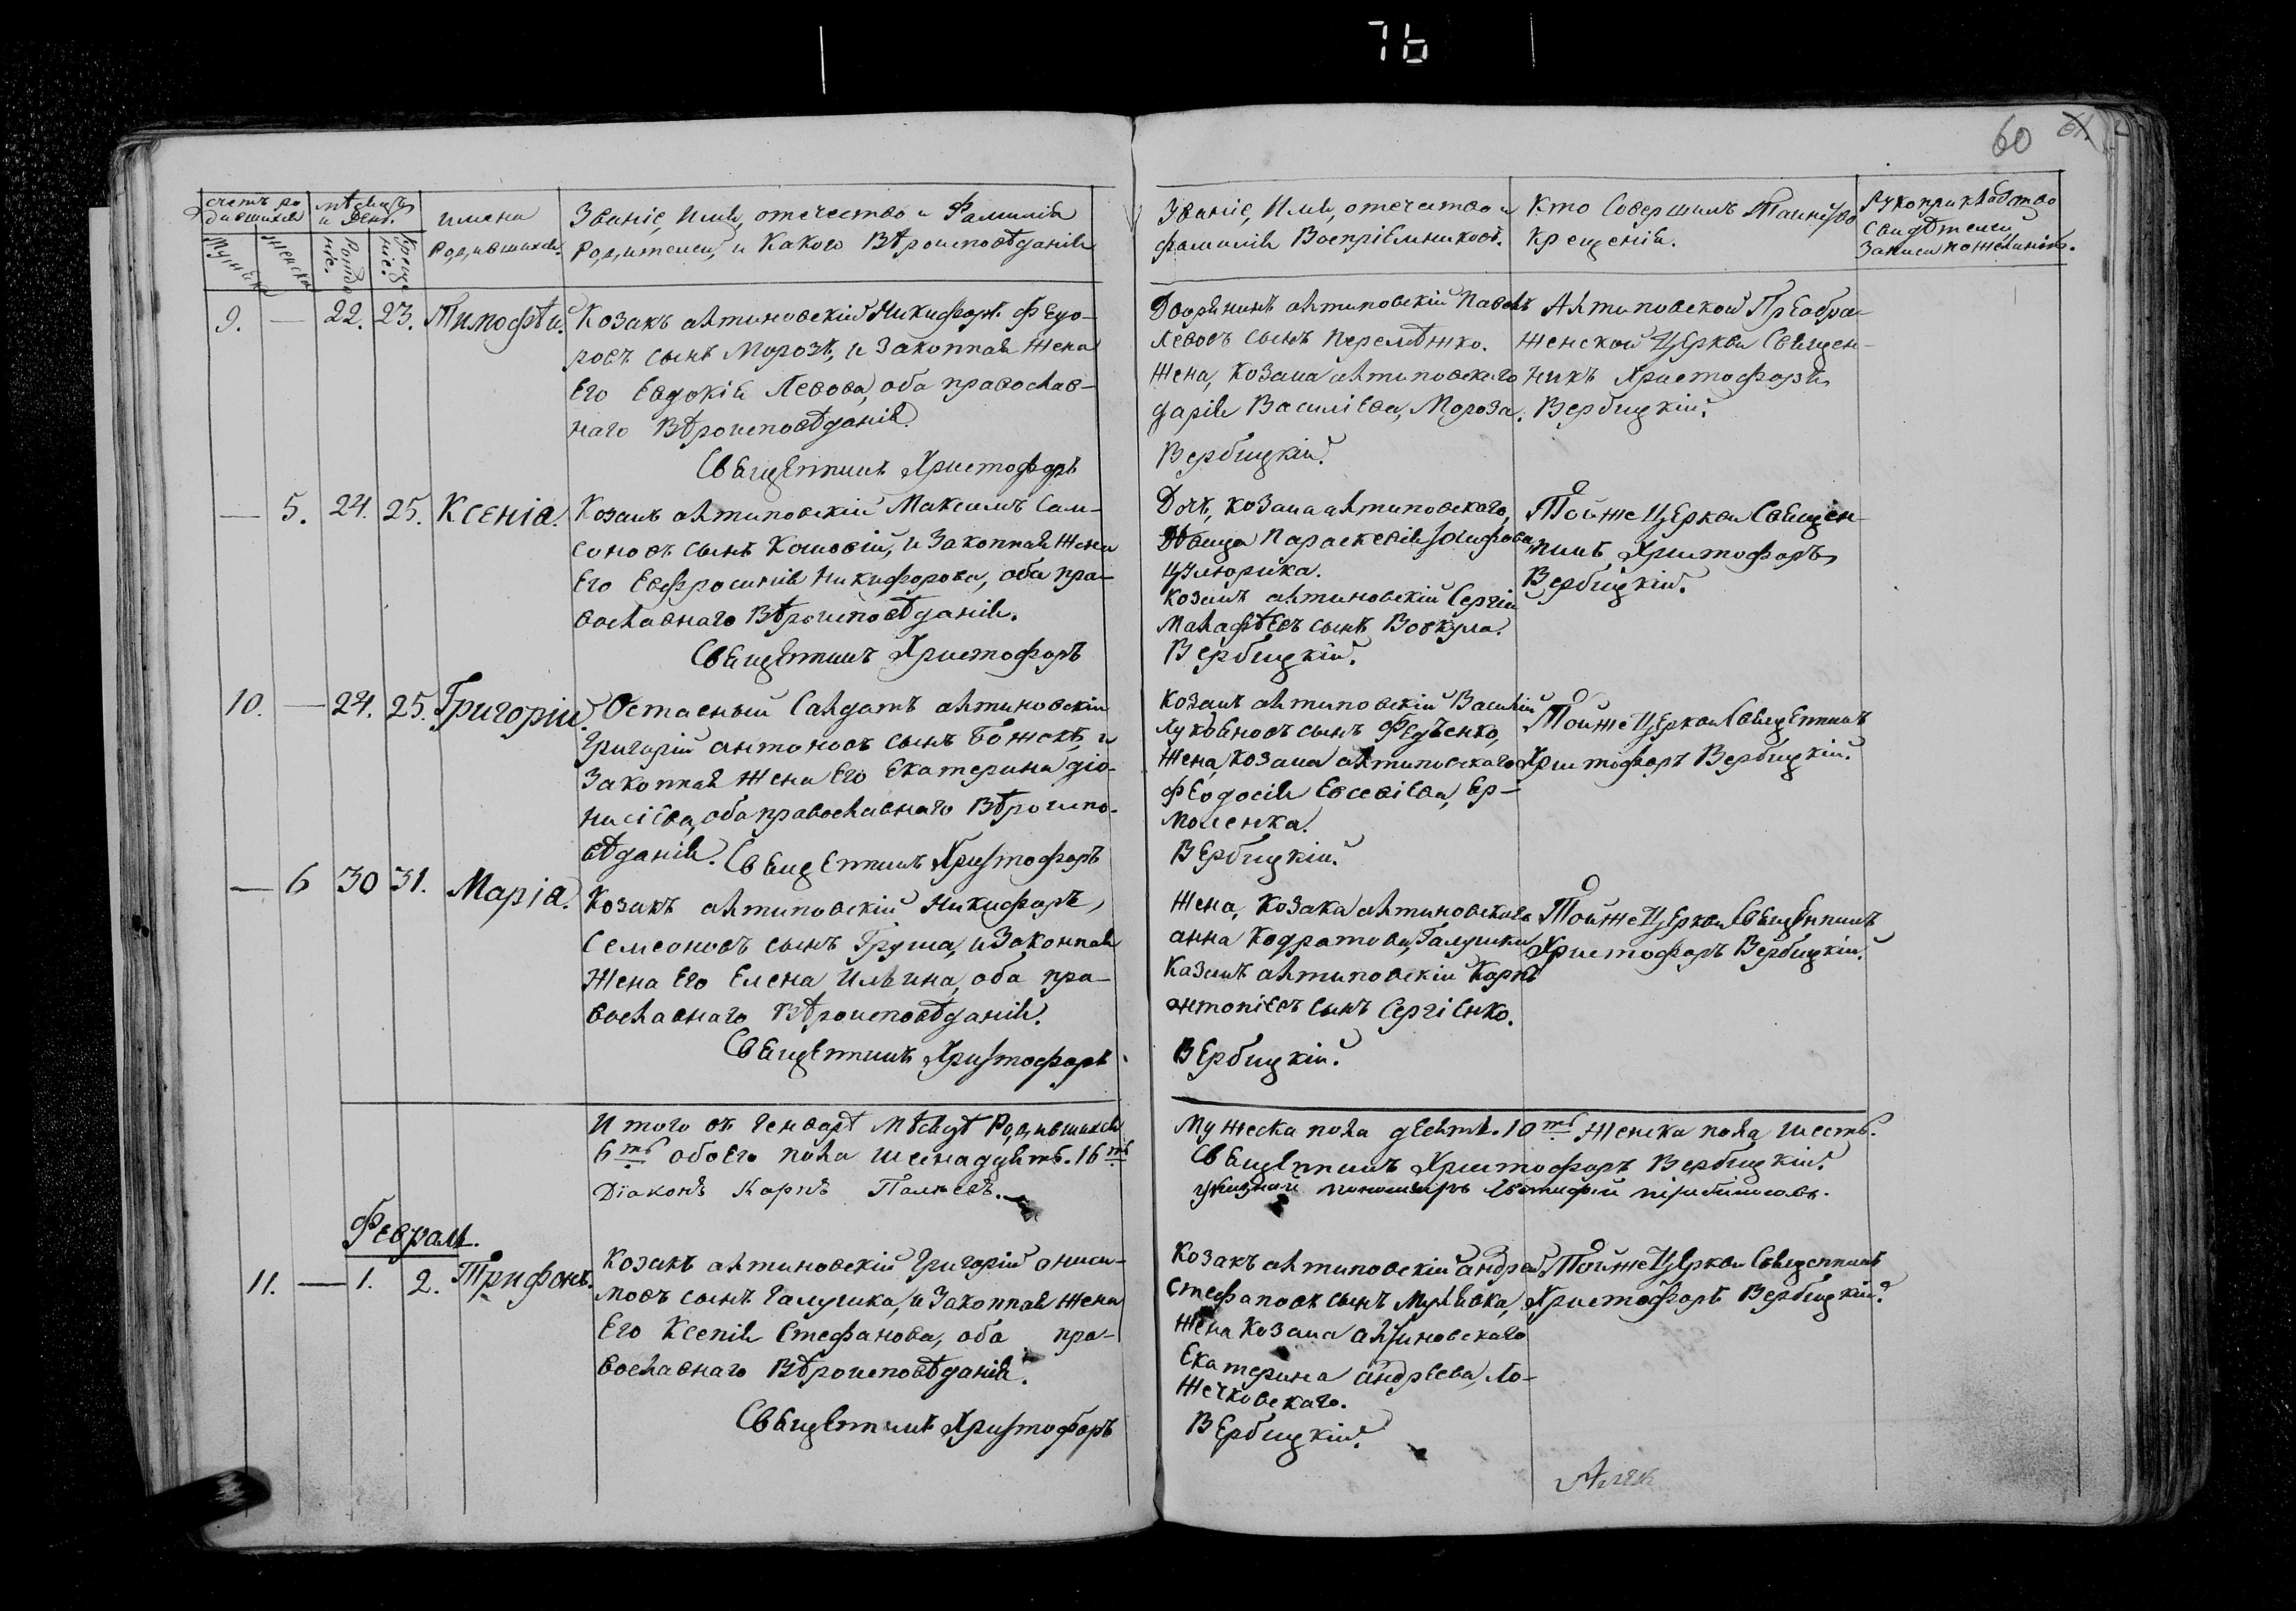 7b
60 61.
счетъ ро
дившихся
мѣсяцъ
и День.
Мужеска
Женска
Рожде
ніе.
Креще
ніе.
имена
Родившихся.
Званіе, Имя, отечество и Фамилія
Родителей, и Какого Вѣроисповѣданія
Званіе, Имя, отечество и
фамилія Воспріемниковъ.
Кто Совершилъ Таинство
Крещенія.
Рукоприкладство
Свидѣтелей
Записи по желанію.
9. — 22. 23. Тимофѣй.
Козакъ алтиновскій Никифоръ Федо-
ровъ сынъ Морозъ, и Законная Жена
Его Евдокія Левова, оба православ-
наго Вѣроисповѣданія.
Священникъ Христофоръ
Дворянинъ алтиновскій Павелъ
Левовъ сынъ
Жена, Козака алтиновского
дарія Василіева, Мороза.
Вербицкій.
Алтиновской Преобра-
женской Церкви Священ-
никъ Христофоръ
Вербицкій.
— 5. 24. 25. Ксенія.
Козакъ алтиновскій Максимъ Сам-
соновъ сынъ и Законная Жена
Его Евфросинія Никифорова, оба пра-
вославнаго Вѣроисповѣданія.
Священникъ Христофоръ
Дочь, козака алтиновского,
Дѣвица Параскевія
Козакъ алтиновскій Сергій
сынъ
Вербицкій.
Тойже Церкви Священ-
никъ Христофоръ
Вербицкій.
10. — 24. 25. Григорій.
Солдатъ алтиновскій
Григорій антоновъ сынъ и
Законная Жена Его Екатерина діо-
нисіева, оба православнаго Вѣроиспо-
вѣданія. Священникъ Христофоръ
Козакъ алтиновскій Василій
сынъ Федченко,
Жена, Козака алтиновского
Феодосія Евсевіева, Ер-
моленка.
Вербицкій.
Тойже Церкви Священникъ
Христофоръ Вербицкій.
— 6 30 31. Марія.
Козакъ алтиновскій Никифоръ,
Семеоновъ сынъ Груша, и Законная
Жена Его Елена Ильина, оба пра-
вославнаго Вѣроисповѣданія.
Священникъ Христофоръ
Жена, Козака алтиновского
анна Кодратова, Галушки
Казакъ алтиновскій Карпъ
сынъ Сергіенко.
Вербицкій.
Тойже Церкви Священникъ
Христофоръ Вербицкій.
Итого въ Генварѣ Мѣсяцѣ Родившихся
6ть обоего пола шеснадцять. 16ть
Діаконъ Карпъ
Мужеска пола десять. 10ть Женска пола шесть.
Священникъ Христофоръ Вербицкій.
пономаръ
Февраль.
11. — 1. 2. Трифонъ.
Козакъ алтиновскій Григорій ониси-
мовъ сынъ Галушка, и Законная Жена
Его Ксенія Стефанова, оба пра-
вославнаго Вѣроисповѣданія.
Священникъ Христофоръ
Козакъ алтиновскій андрей
Стефановъ сынъ
Жена Козака алтиновского
Екатерина андреева, Ло-
жечковского.
Вербицкій.
Тойже Церкви Священникъ
Христофоръ Вербицкій.